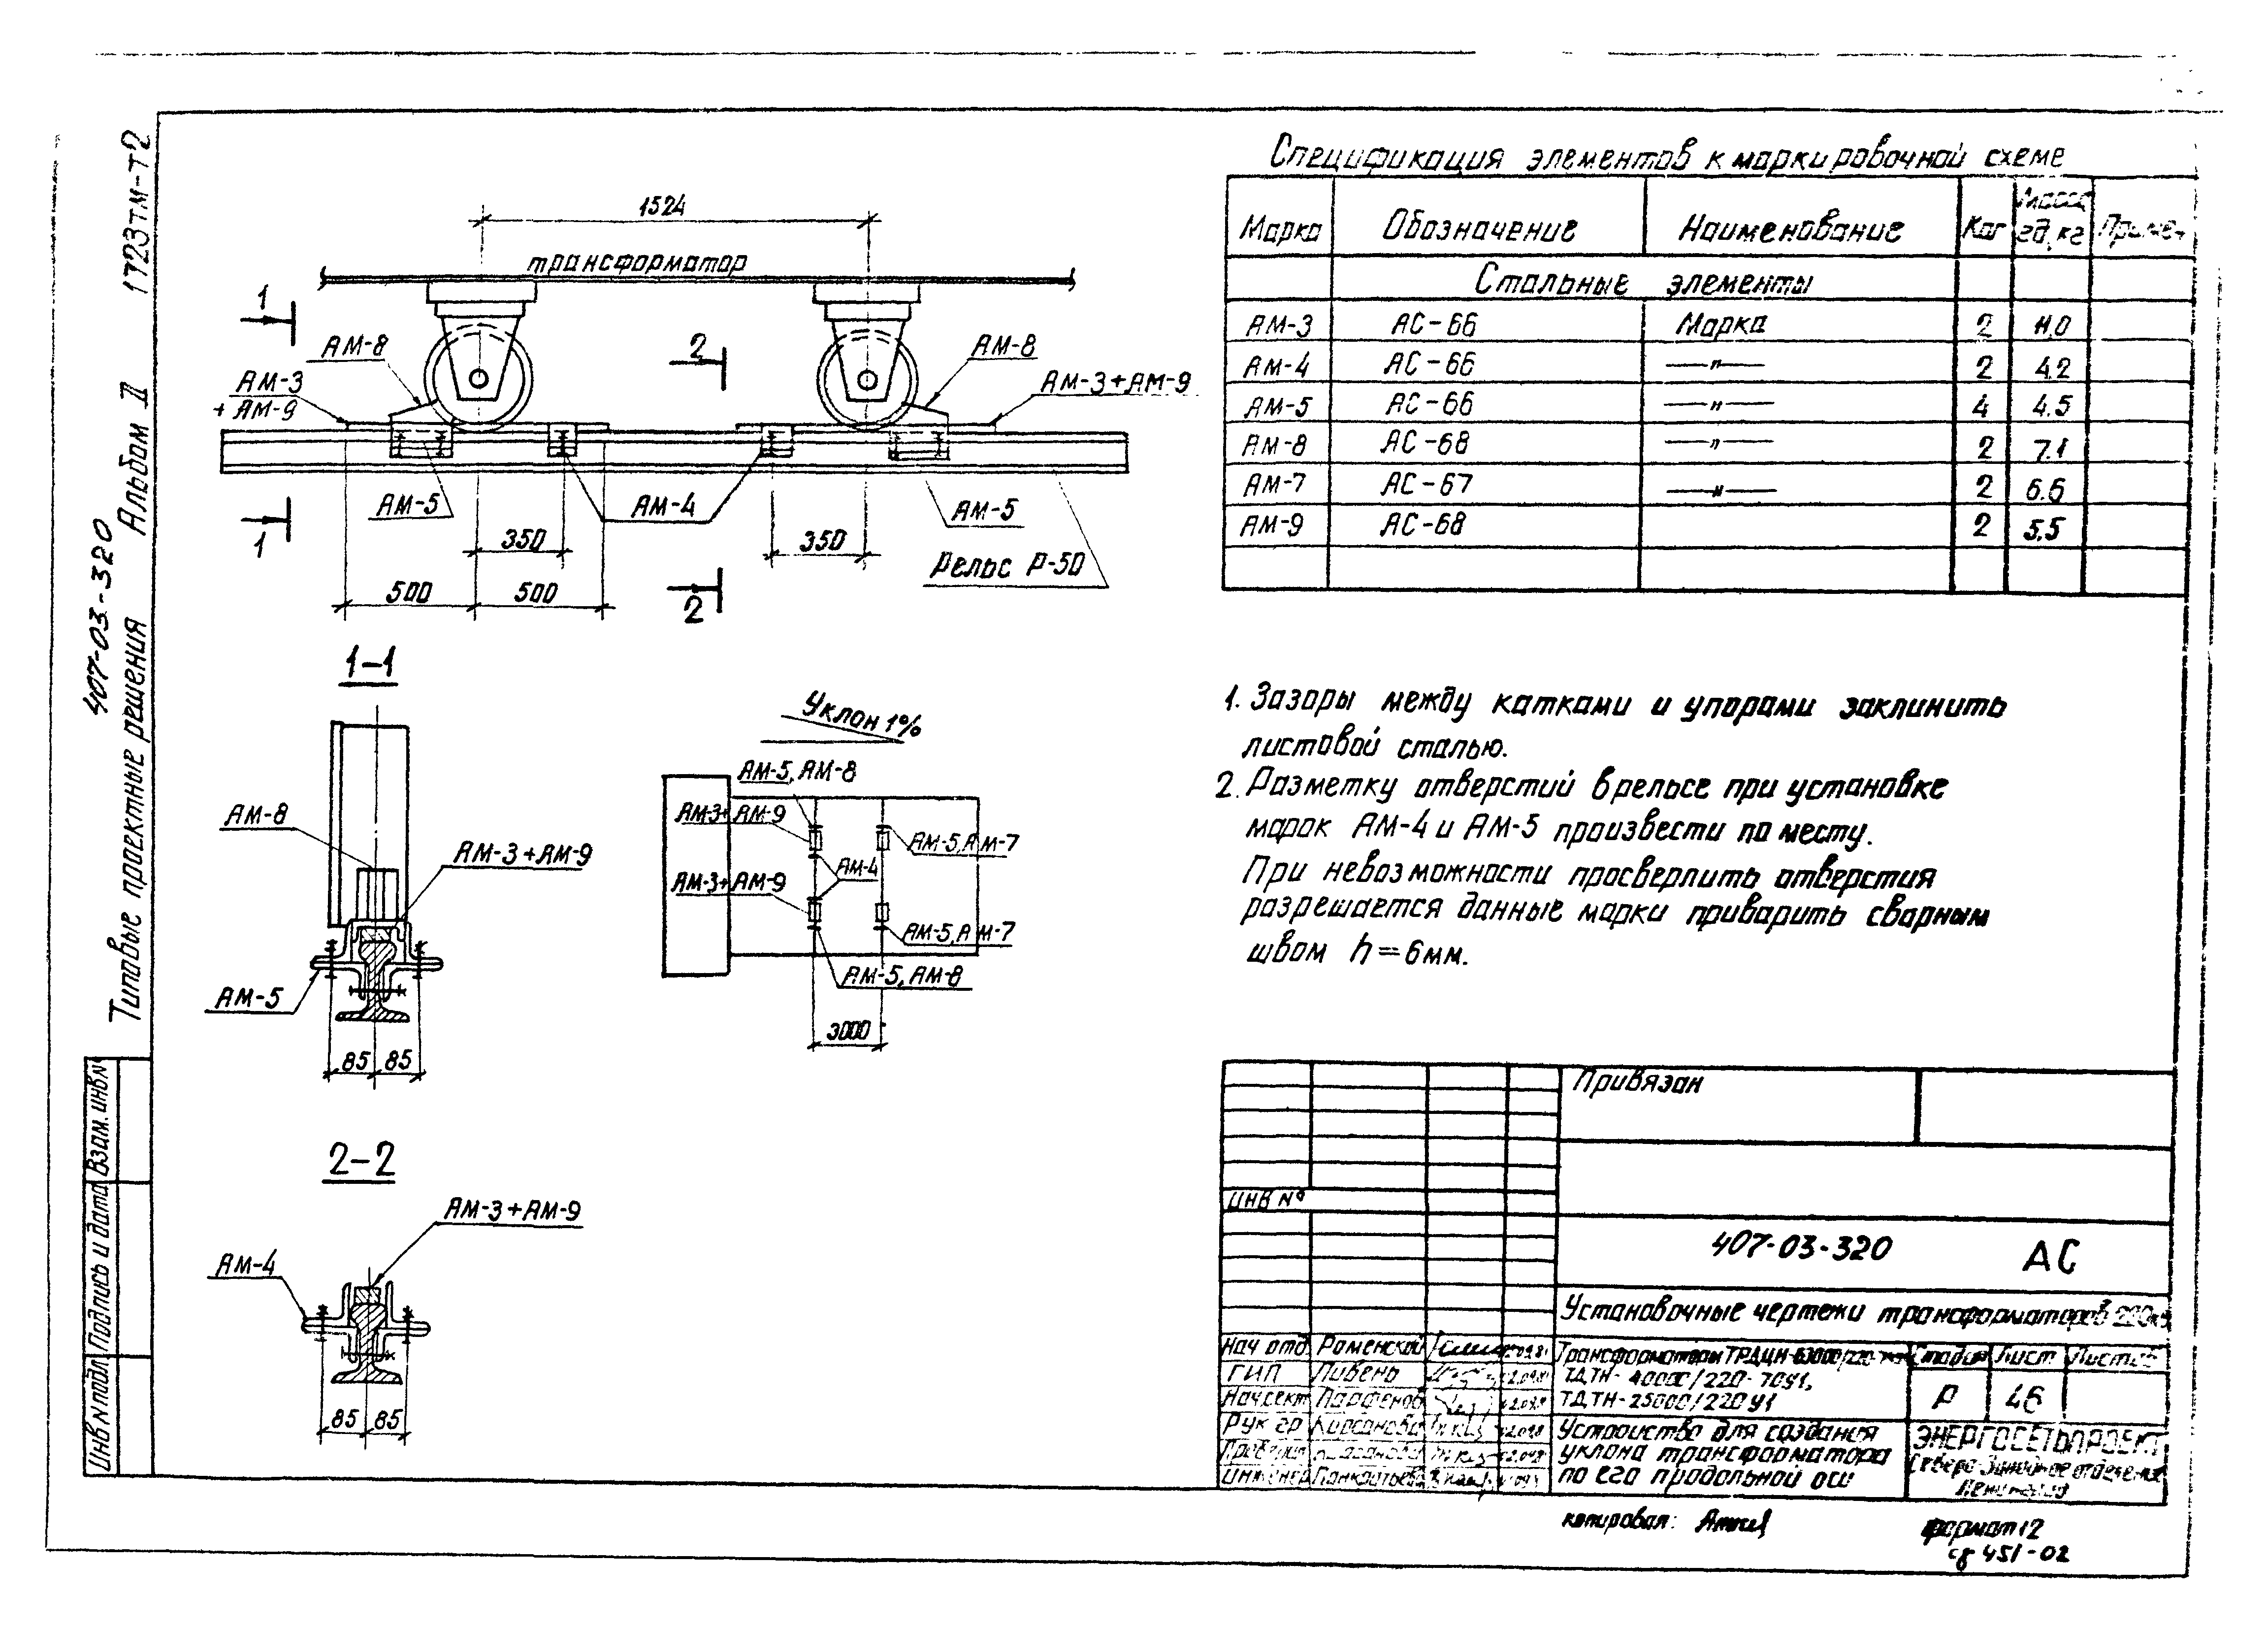 1723тм-т2
Альбом II
Типовые проектные решения
407-03-320
Взам. инв.№
Подпись и дата
Инв № подл
1524
трансформатор
1
АМ-8
2
АМ-8
АМ-3
+ АМ-9
АМ-3+АМ-9
АМ-5
АМ-4
АМ-5
1
350
350
Рельс Р-50
500
500
2
1-1
АМ-8
АМ-3+АМ-9
АМ-5
85
85
Уклон 1%
АМ-5, АМ-8
АМ-3+АМ-9
АМ-5, АМ-7
АМ-4
АМ-3+АМ-9
АМ-5, АМ-7
АМ-5, АМ-8
3000
2-2
АМ-3+АМ-9
АМ-4
85
85
Спецификация элементов к маркировочной схеме
Марка Обозначение Наименование Кол Масса ед, кг Примеч
Стальные элементы
АМ-3 АС-66 Марка 2 11,0
АМ-4 АС-66 —"— 2 4.2
АМ-5 АС-66 —"— 4 4.5
АМ-8 АС-68 —"— 2 7.1
АМ-7 АС-67 —"— 2 6.6
АМ-9 АС-68 2 5.5
1. Зазоры между катками и упорами заклинить
листовой сталью.
2. Разметку отверстий в рельсе при установке
марок АМ-4 и АМ-5 произвести по месту.
При невозможности просверлить отверстия
разрешается данные марки приварить сварным
швом h=6мм.
Привязан
ИНВ №
407-03-320 АС
Установочные чертежи трансформаторов 220кв
Нач отд. Роменский
ГИП Ливень
Нач.сект Парфенов
Рук гр Кирсанова
Инженер Панкратьева
Трансформаторы ТРДЦН-63000/220
ТДТН-40000/220-70У1,
ТДТН-25000/220У1
Стадия Лист Листов
Р 46
Устройство для создания
уклона трансформатора
по его продольной оси
ЭНЕРГОСЕТЬПРОЕКТ
Северо-Западное отделение
Ленинград
копировал:
формат 12
сф 451-02